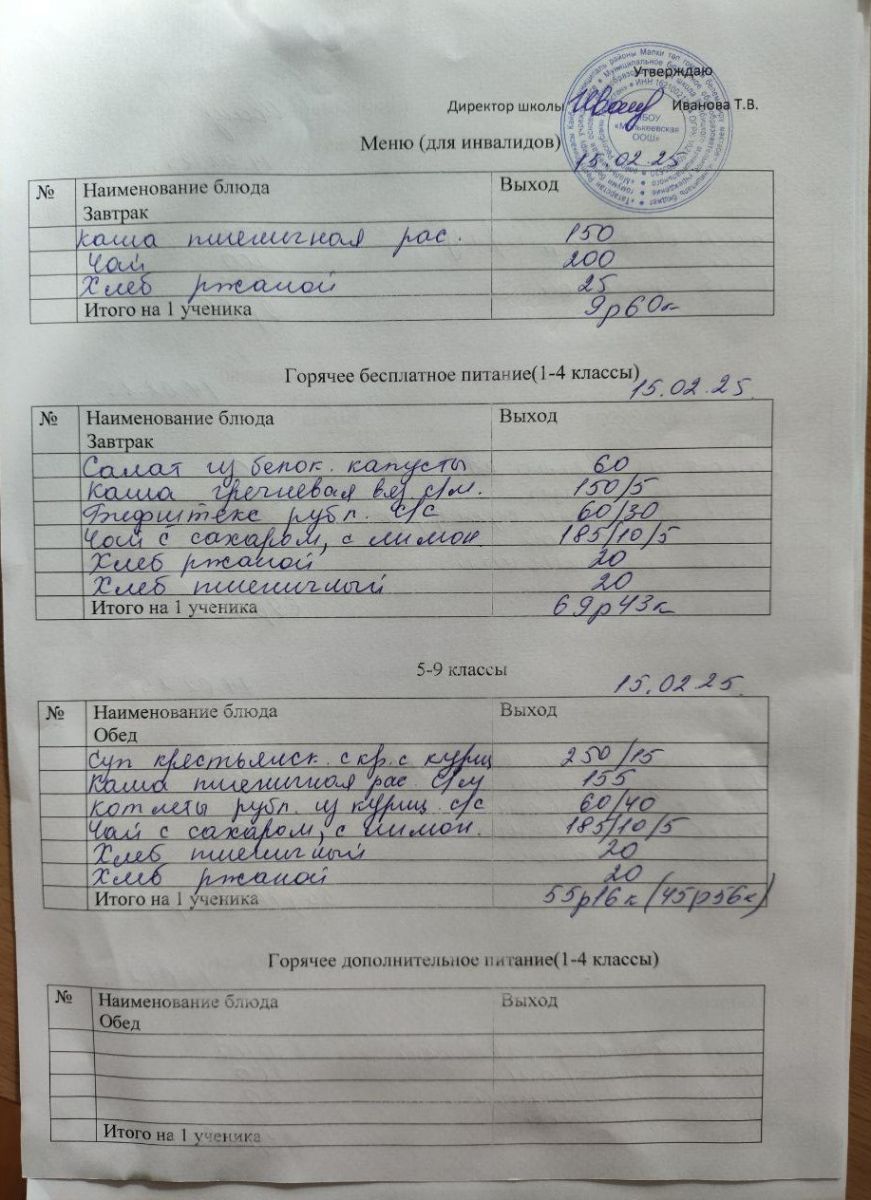 Утверждаю
Директор школы Иванова Т.В.
МБОУ
ООШ»
Меню (для инвалидов)
15.02.25
№ Наименование блюда Выход
Завтрак
каша пшеничная рас. 150
Чай 200
Хлеб ржаной 25
Итого на 1 ученика 9р60к
Горячее бесплатное питание(1-4 классы)
15.02.25.
№ Наименование блюда Выход
Завтрак
Салат из белок. капусты 60
Каша гречневая вяз с/м. 150/5
Бифштекс рубл. с/с 60/30
Чай с сахаром, с лимон 185/10/5
Хлеб ржаной 20
Хлеб пшеничный 20
Итого на 1 ученика 69р43к
5-9 классы
15.02.25.
№ Наименование блюда Выход
Обед
Суп крестьянск. с кр. с куриц 250/15
Каша пшеничная рас с/м 155
Котлеты рубл. из куриц. с/с 60/40
Чай с сахаром, с лимон. 185/10/5
Хлеб пшеничный 20
Хлеб ржаной 20
Итого на 1 ученика 55р16к (45р56к)
Горячее дополнительное питание(1-4 классы)
№ Наименование блюда Выход
Обед
Итого на 1 ученика